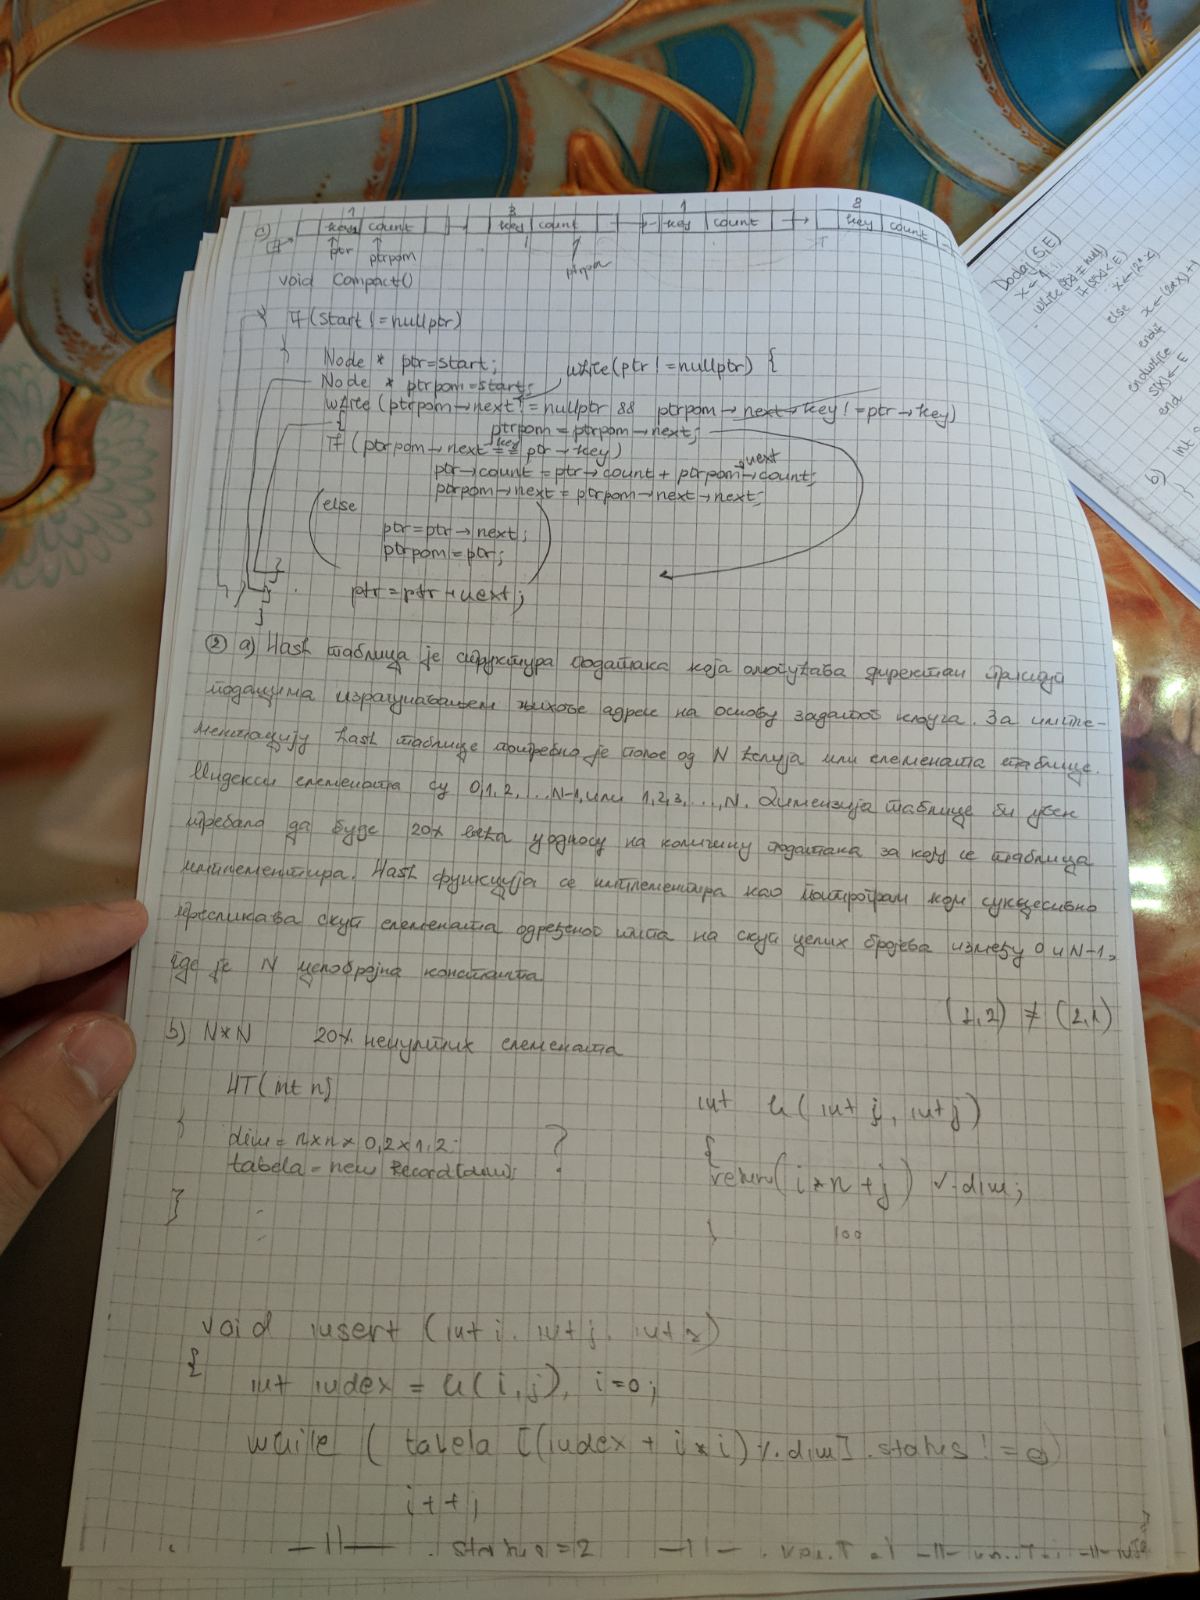 c)
1 3 1 8
key count key count key count key count
ptr ptrpom ptrpom
void Compact()
{ if (start != nullptr)
{ Node * ptr=start; while(ptr != nullptr) {
Node * ptrpom=start;
while (ptrpom→next != nullptr && ptrpom→next→key != ptr→key)
ptrpom = ptrpom→next;
if (ptrpom→next→key == ptr→key)
ptr→count = ptr→count + ptrpom→next→count;
ptrpom→next = ptrpom→next→next;
else
ptr=ptr→next;
ptrpom=ptr;
}
ptr=ptr→next;
}
2 a) Hash таблица је структура података која омогућава директан приступ
подацима израчунавањем њихове адресе на основу задатог кључа. За импле-
ментацију hash таблице потребно је поље од N ћелија или елемената таблице.
Индекси елемената су 0,1,2,...N-1, или 1,2,3,...,N. Димензија таблице би увек
требало да буде 20% већа у односу на количину података за коју се таблица
имплементира. Hash функција се имплементира као потпрограм који сукцесивно
пресликава скуп елемената одређеног типа на скуп целих бројева између 0 и N-1,
где је N целобројна константа
(1,2) ≠ (2,1)
b) N*N 20% ненултих елемената
HT(int n)
{
dim = n*n*0,2*1,2; ?
tabela = new Record[dim];
}
int h(int i, int j)
{
return (i*n+j) % dim;
}
100
void insert (int i, int j, int
{
int index = h(i,j), i=0;
while ( tabela [(index + i*i) % dim].status != 0)
i++;
—11— . status=2 —11— . —11— —11—
Dodaj(S,E)
x ← 1
while
if
x ← (2*x)
else
x ← (2*x)+1
endif
endwhile
S(x) ← E
end
b) int